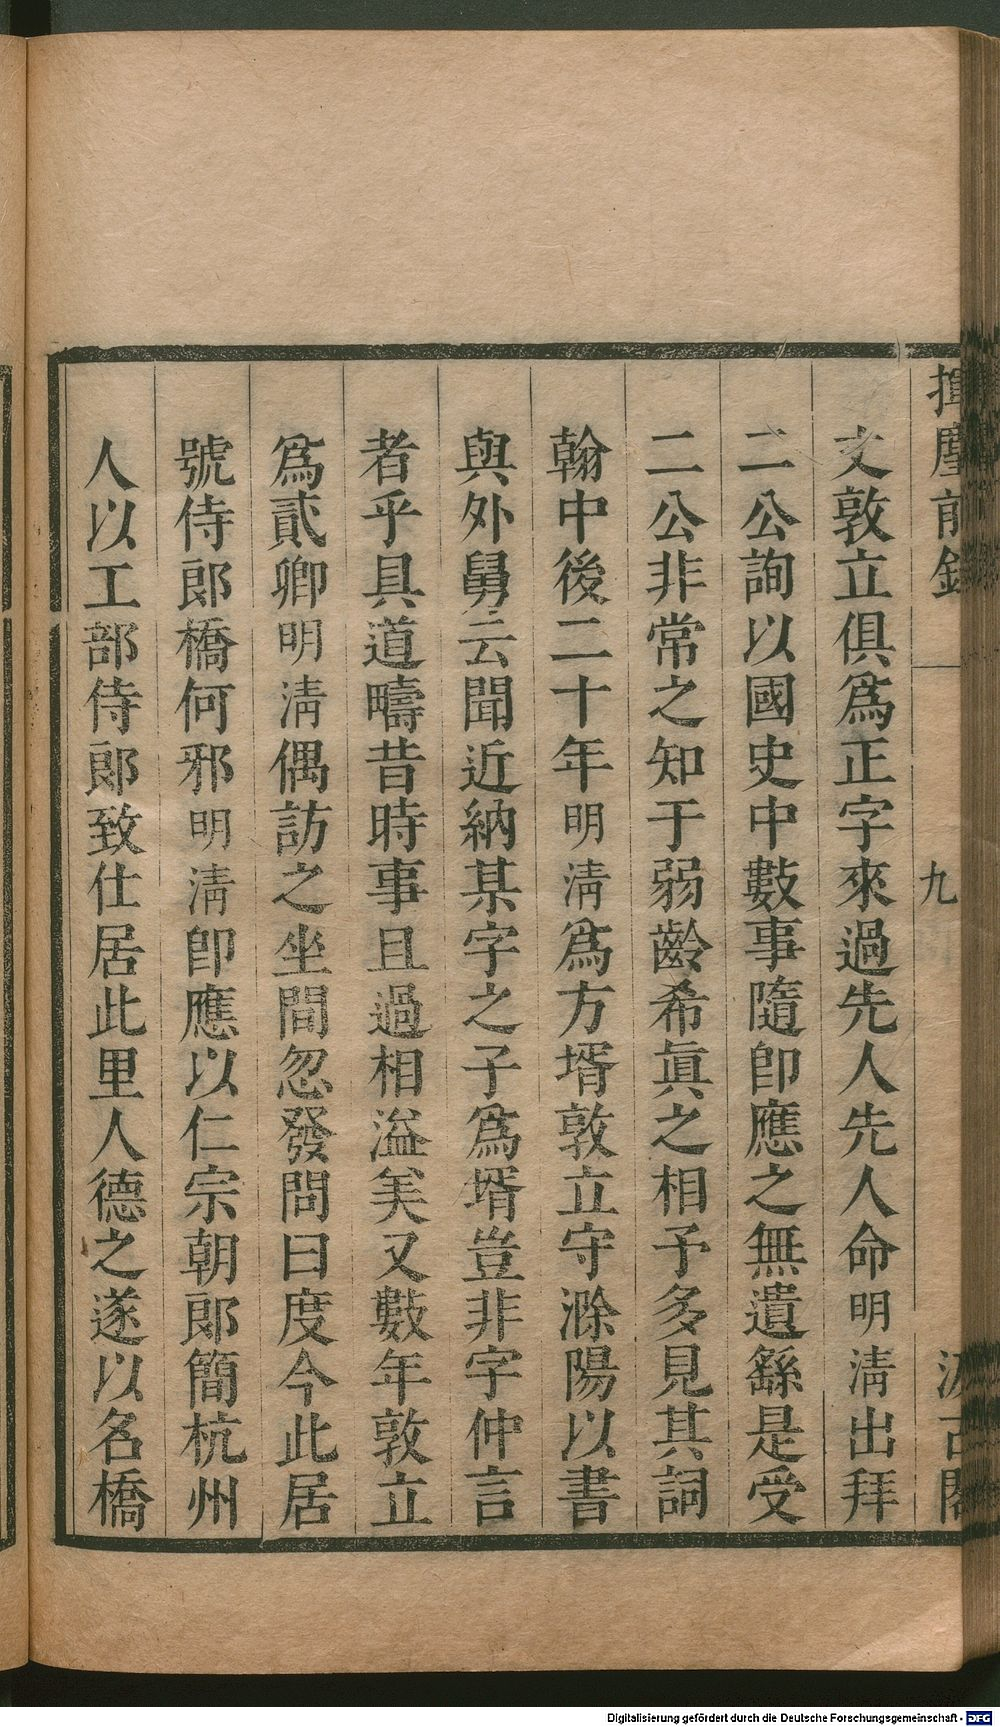 揮麈前錄 九 汲古閣
文敦立俱爲正字來過先人先人命明淸出拜
二公詢以國史中數事隨卽應之無遺繇是受
二公非常之知于弱齡希眞之相予多見其詞
翰中後二十年明淸爲方壻敦立守滁陽以書
與外舅云聞近納某字之子爲壻豈非字仲言
者乎具道疇昔時事且過相溢美又數年敦立
爲貳卿明淸偶訪之坐間忽發問曰度今此居
號侍郎橋何邪明淸卽應以仁宗朝郎簡杭州
人以工部侍郎致仕居此里人德之遂以名橋
Digitalisierung gefördert durch die Deutsche Forschungsgemeinschaft - DFG